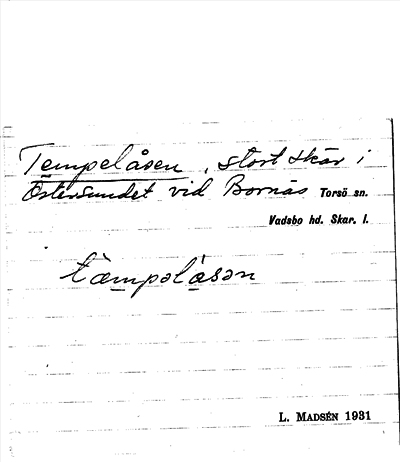 Tempelåsen, stort skär i
Östersundet vid Bornäs Torsö sn.
Vadsbo hd. Skar. l.
tæ̀mpəlåsən
L. MADSÉN 1931